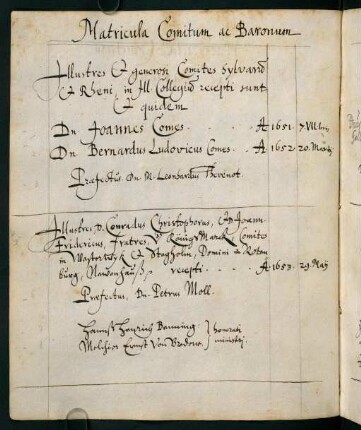 Matricula Comitum ac Baronum
Illustres et generosi Comites Sylvarum
et Rheni, in Ill. Collegium recepti sunt
et quidem
Dn. Joannes Comes . . . A 1651. 7.
Dn. Bernardus Ludovicus Comes . A 1652. 20.
Præfectus. Dn. M. Leonhardus Thevenot.
Illustres, D. Conradus Christophorus, et D. Joann-
Fridericus, Fratres, Königs Marck, Comites
in et Steghólm, Domini in Roten
burg, Neuenhauß, recepti . . . A 1653. 29. Maij
Præfectus, Dn. Petrus Moll.
Hannß Henrich Banning } honorati
Melchior Ernst Von } ministri.